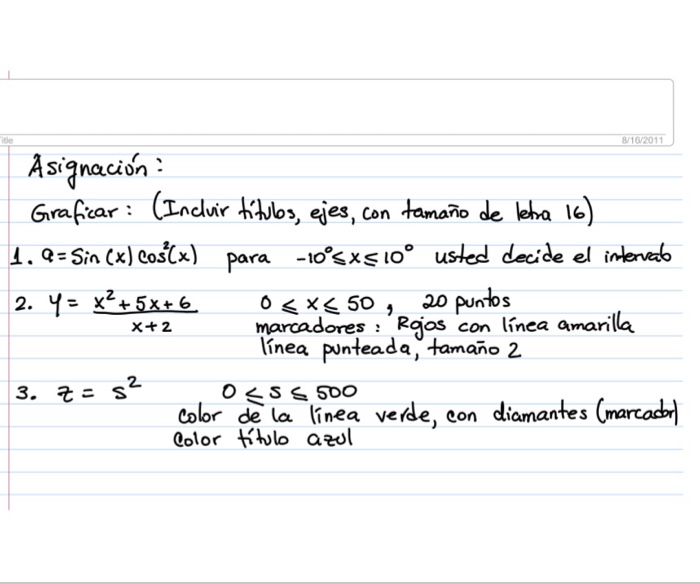 Title
8/16/2011
Asignación:
Graficar: (Incluir títulos, ejes, con tamaño de letra 16)
1. a = Sin(x) cos²(x) para -10° ≤ x ≤ 10° usted decide el intervalo
2. y = (x² + 5x + 6)/(x + 2) 0 ≤ x ≤ 50, 20 puntos
marcadores: Rojos con línea amarilla
línea punteada, tamaño 2
3. z = s² 0 ≤ s ≤ 500
Color de la línea verde, con diamantes (marcador)
Color título azul